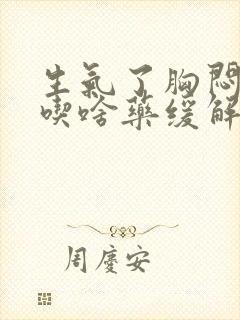 生氣了胸悶
喫啥藥緩解
周慶安